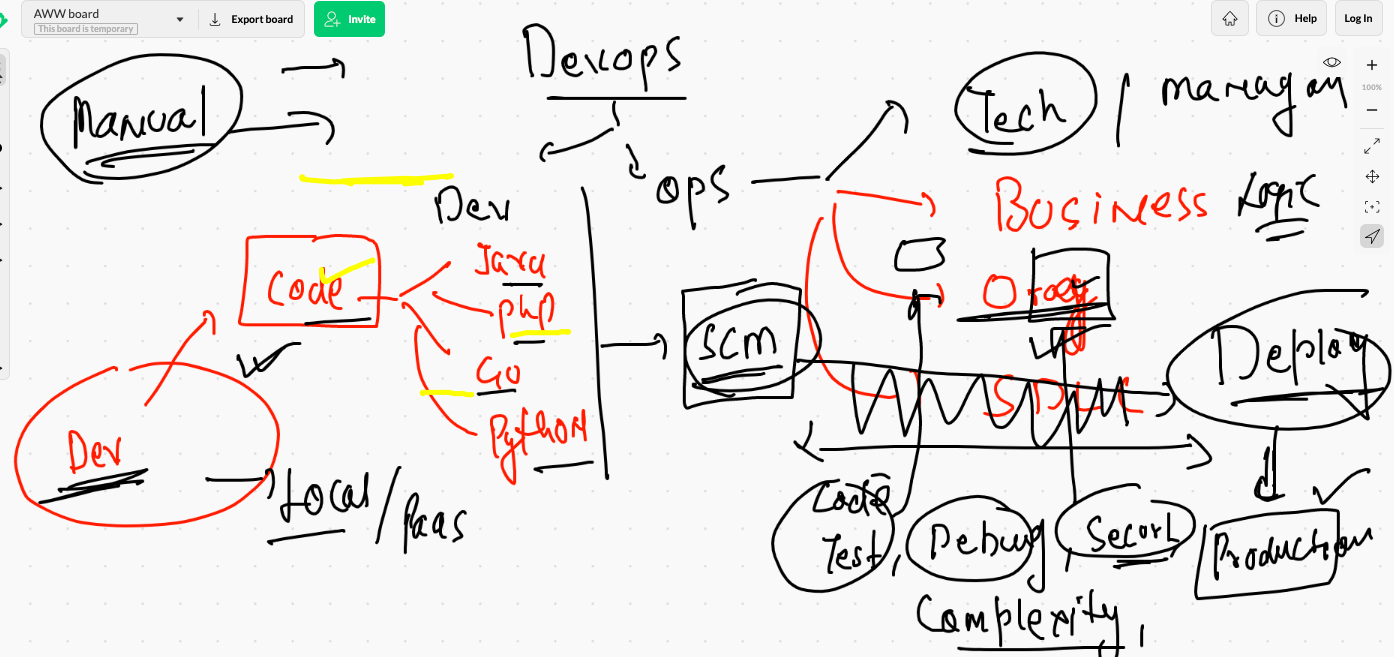 AWW board
This board is temporary
Export board
Invite
Help
Log In
100%
Devops
Manual
Tech /
Dev
ops
Business Logic
Code
Java
php
Go
Python
SCM
SDLC
Deploy
Dev
Local / Paas
Code
Test,
Debug,
Production
Complexity,